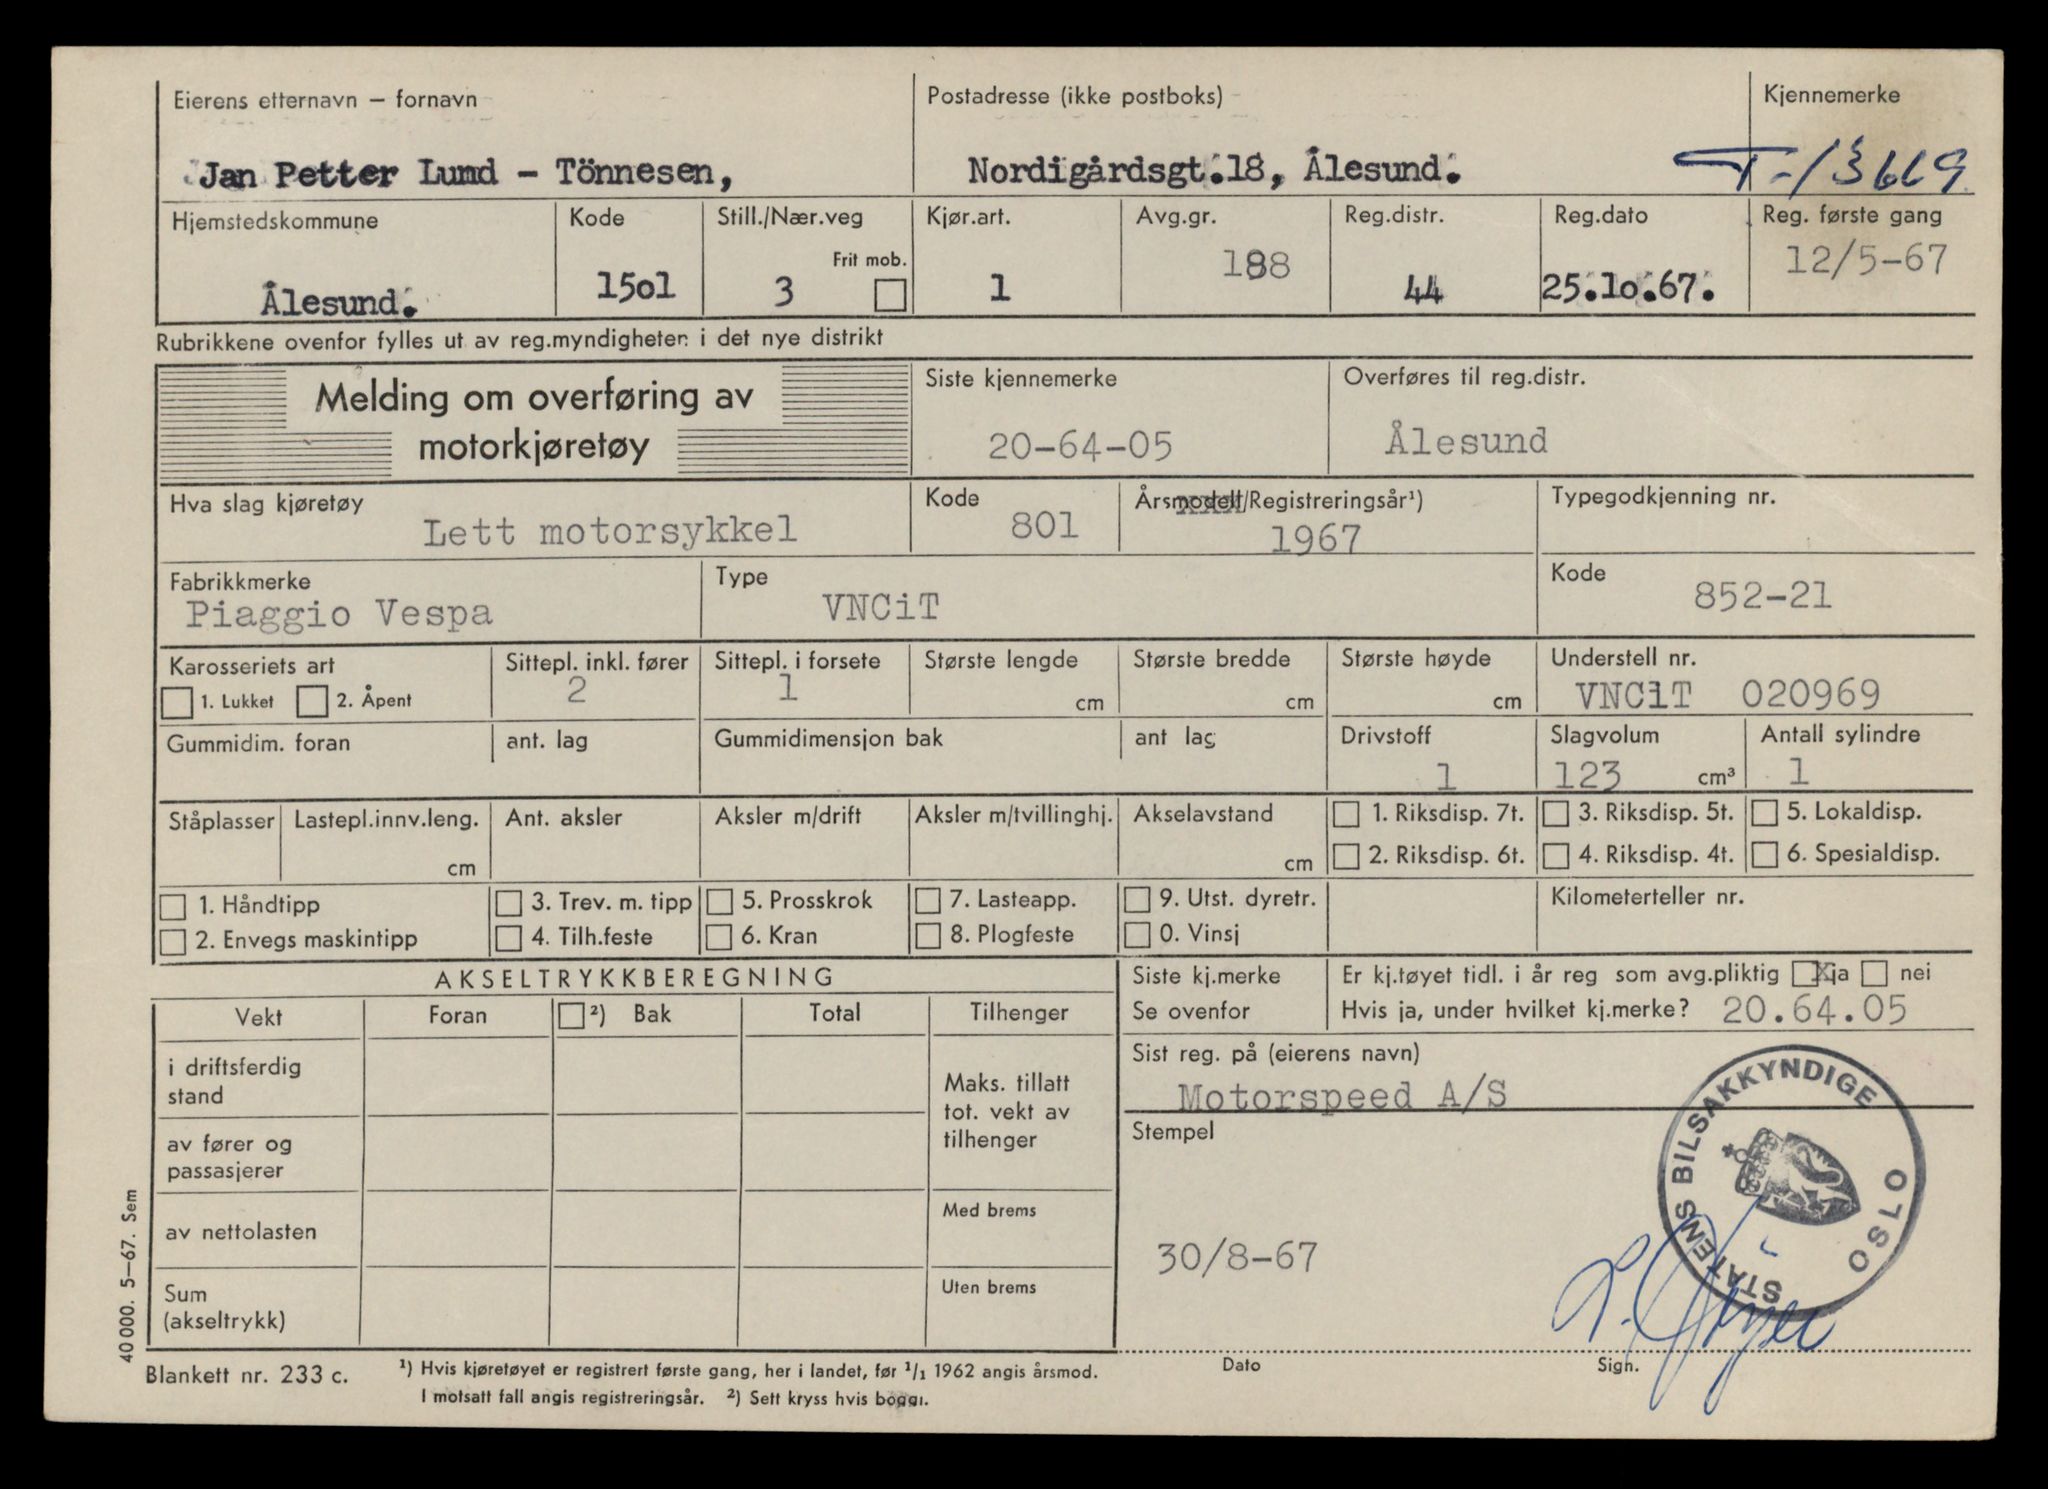 Eierens etternavn – fornavn
Postadresse (ikke postboks)
Kjennemerke
Jan Petter Lund - Tönnesen,
Nordigårdsgt.18, Ålesund.
T-13669
Hjemstedskommune
Kode
Still./Nær.veg
Kjør.art.
Avg.gr.
Reg.distr.
Reg.dato
Reg. første gang
Frit mob.
Ålesund.
15o1
3
1
188
44
25.1o.67.
12/5-67
Rubrikkene ovenfor fylles ut av reg.myndigheten i det nye distrikt
Melding om overføring av
motorkjøretøy
Siste kjennemerke
20-64-05
Overføres til reg.distr.
Ålesund
Hva slag kjøretøy
Lett motorsykkel
Kode
801
Årsmodell/Registreringsår¹)
1967
Typegodkjenning nr.
Fabrikkmerke
Piaggio Vespa
Type
VNCiT
Kode
852-21
Karosseriets art
1. Lukket 2. Åpent
Sittepl. inkl. fører
2
Sittepl. i forsete
1
Største lengde
cm
Største bredde
cm
Største høyde
cm
Understell nr.
VNC1T 020969
Gummidim. foran
ant. lag
Gummidimensjon bak
ant lag
Drivstoff
1
Slagvolum
123 cm³
Antall sylindre
1
Ståplasser
Lastepl.innv.leng.
cm
Ant. aksler
Aksler m/drift
Aksler m/tvillinghj.
Akselavstand
cm
1. Riksdisp. 7t.
3. Riksdisp. 5t.
5. Lokaldisp.
2. Riksdisp. 6t.
4. Riksdisp. 4t.
6. Spesialdisp.
1. Håndtipp
3. Trev. m. tipp
5. Prosskrok
7. Lasteapp.
9. Utst. dyretr.
Kilometerteller nr.
2. Envegs maskintipp
4. Tilh.feste
6. Kran
8. Plogfeste
0. Vinsj
AKSELTRYKKBEREGNING
Siste kj.merke
Se ovenfor
Er kj.tøyet tidl. i år reg som avg.pliktig X ja nei
Hvis ja, under hvilket kj.merke? 20.64.05
Vekt
Foran
²) Bak
Total
Tilhenger
i driftsferdig
stand
av fører og
passasjerer
av nettolasten
Sum
(akseltrykk)
Maks. tillatt
tot. vekt av
tilhenger
Med brems
Uten brems
Sist reg. på (eierens navn)
Motorspeed A/S
Stempel
STATENS BILSAKKYNDIGE
OSLO
30/8-67
Dato
Sign.
40000. 5–67. Sem
Blankett nr. 233 c.
¹) Hvis kjøretøyet er registrert første gang, her i landet, før 1/1 1962 angis årsmod.
I motsatt fall angis registreringsår. ²) Sett kryss hvis boggi.